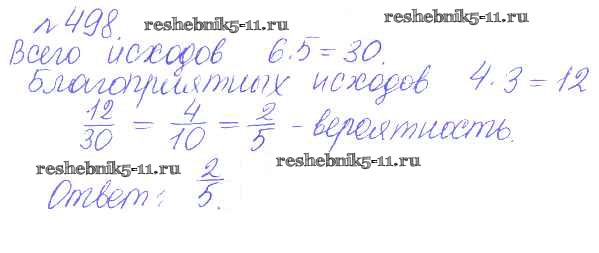 №498. reshebnik5-11.ru reshebnik5-11.ru
Всего исходов 6·5=30.
Благоприятных исходов 4·3=12
12/30 = 4/10 = 2/5 - вероятность.
reshebnik5-11.ru reshebnik5-11.ru
Ответ: 2/5.
reshebnik5-11.ru